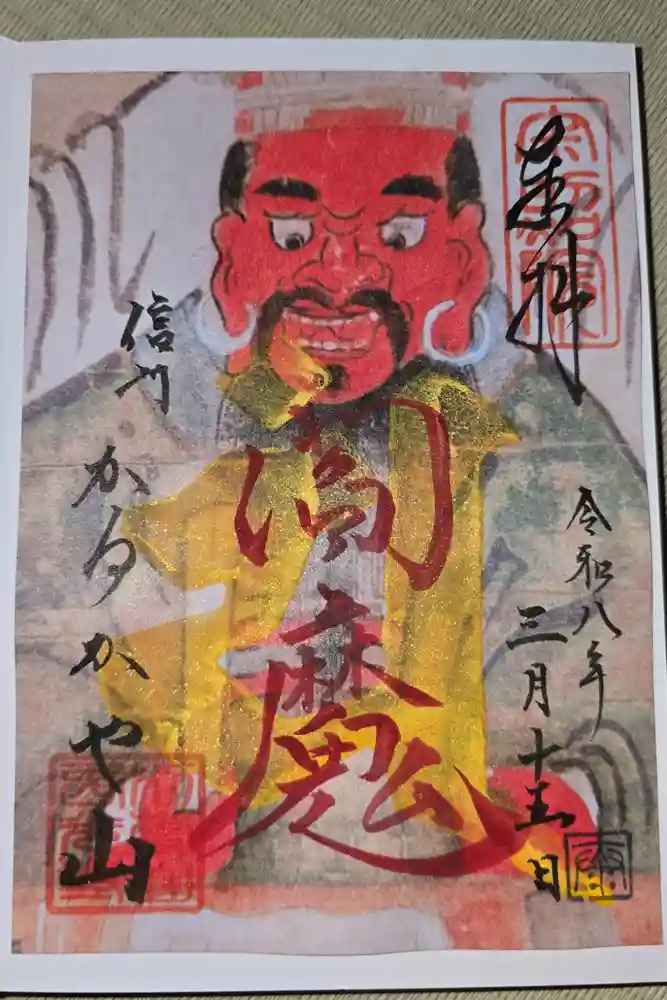 奉拝
令和八年
三月十五日
閻魔
信州 かるかや山